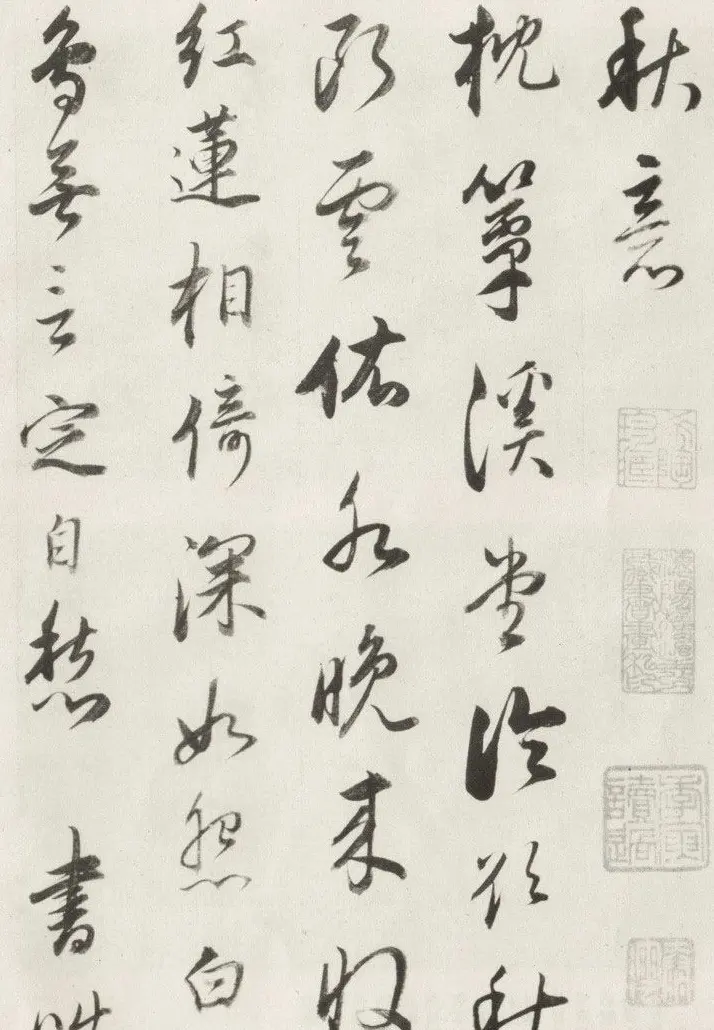 秋意
枕簟溪堂冷欲秋
斷雲依水晚来收
紅蓮相倚深如怨白
鳥無言定自愁書